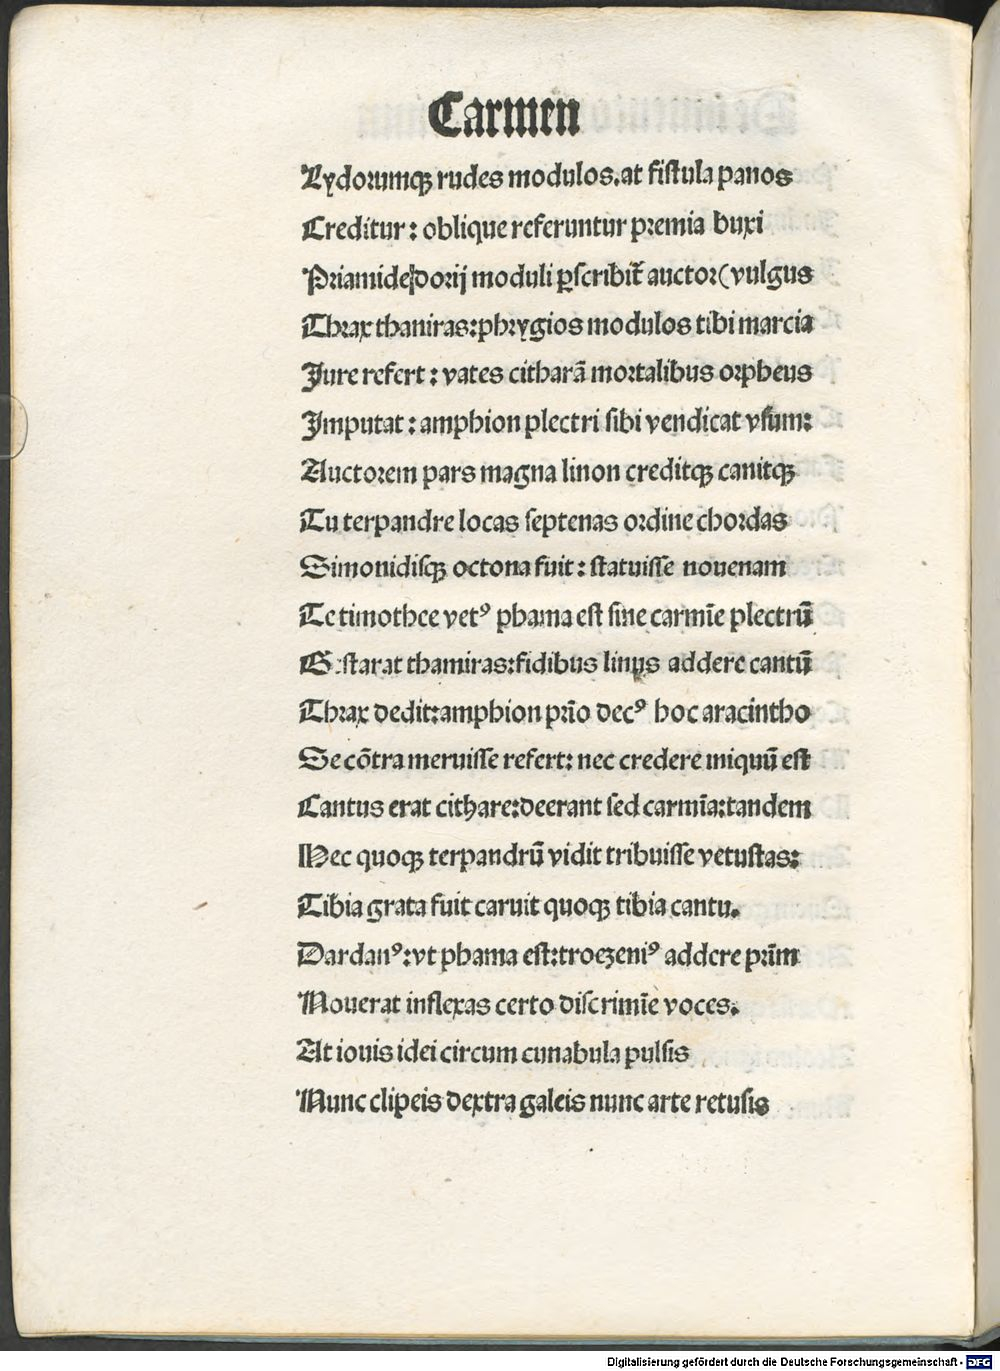 Carmen
Lydorumqꝫ rudes modulos.at fistula panos
Creditur: oblique referuntur premia buxi
Priamide dorij moduli ꝑscribit̃ auctor(vulgus
Thrax thaniras:phrygios modulos tibi marcia
Jure refert: vates citharã mortalibus orpheus
Imputat: amphion plectri sibi vendicat vsum:
Auctorem pars magna linon creditqꝫ canitqꝫ
Tu terpandre locas septenas ordine chordas
Simonidisqꝫ octona fuit: statuisse nouenam
Te timothee vetꝰ phama est sine carmīe plectrũ
Gestarat thamiras:fidibus linus addere cantũ
Thrax dedit:amphion prĩo decꝰ hoc aracintho
Se cõtra meruisse refert: nec credere iniquũ est
Cantus erat cithare:deerant sed carmĩa:tandem
Nec quoqꝫ terpandrũ vidit tribuisse vetustas:
Tibia grata fuit caruit quoqꝫ tibia cantu.
Dardanꝰ:vt phama est:troezeniꝰ addere prĩm
Nouerat inflexas certo discrimĩe voces.
At iouis idei circum cunabula pulsis
Nunc clipeis dextra galeis nunc arte retusis
Digitalisierung gefördert durch die Deutsche Forschungsgemeinschaft - DFG